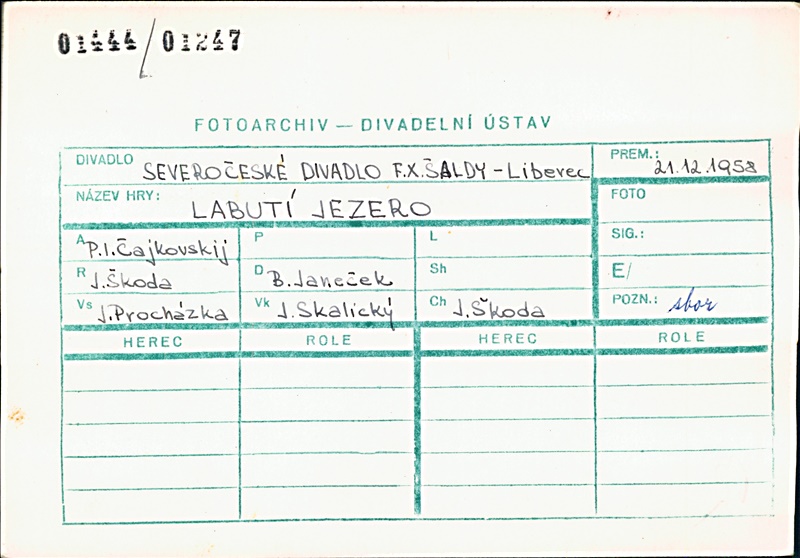 01444/01247
FOTOARCHIV — DIVADELNÍ ÚSTAV
DIVADLO SEVEROČESKÉ DIVADLO F.X.ŠALDY - Liberec PREM.: 21.12.1958
NÁZEV HRY: LABUTÍ JEZERO FOTO
A P.I.Čajkovskij P L SIG.:
R J.Škoda D B.Janeček Sh E/
Vs J.Procházka Vk J.Skalický Ch J.Škoda POZN.: sbor
HEREC ROLE HEREC ROLE